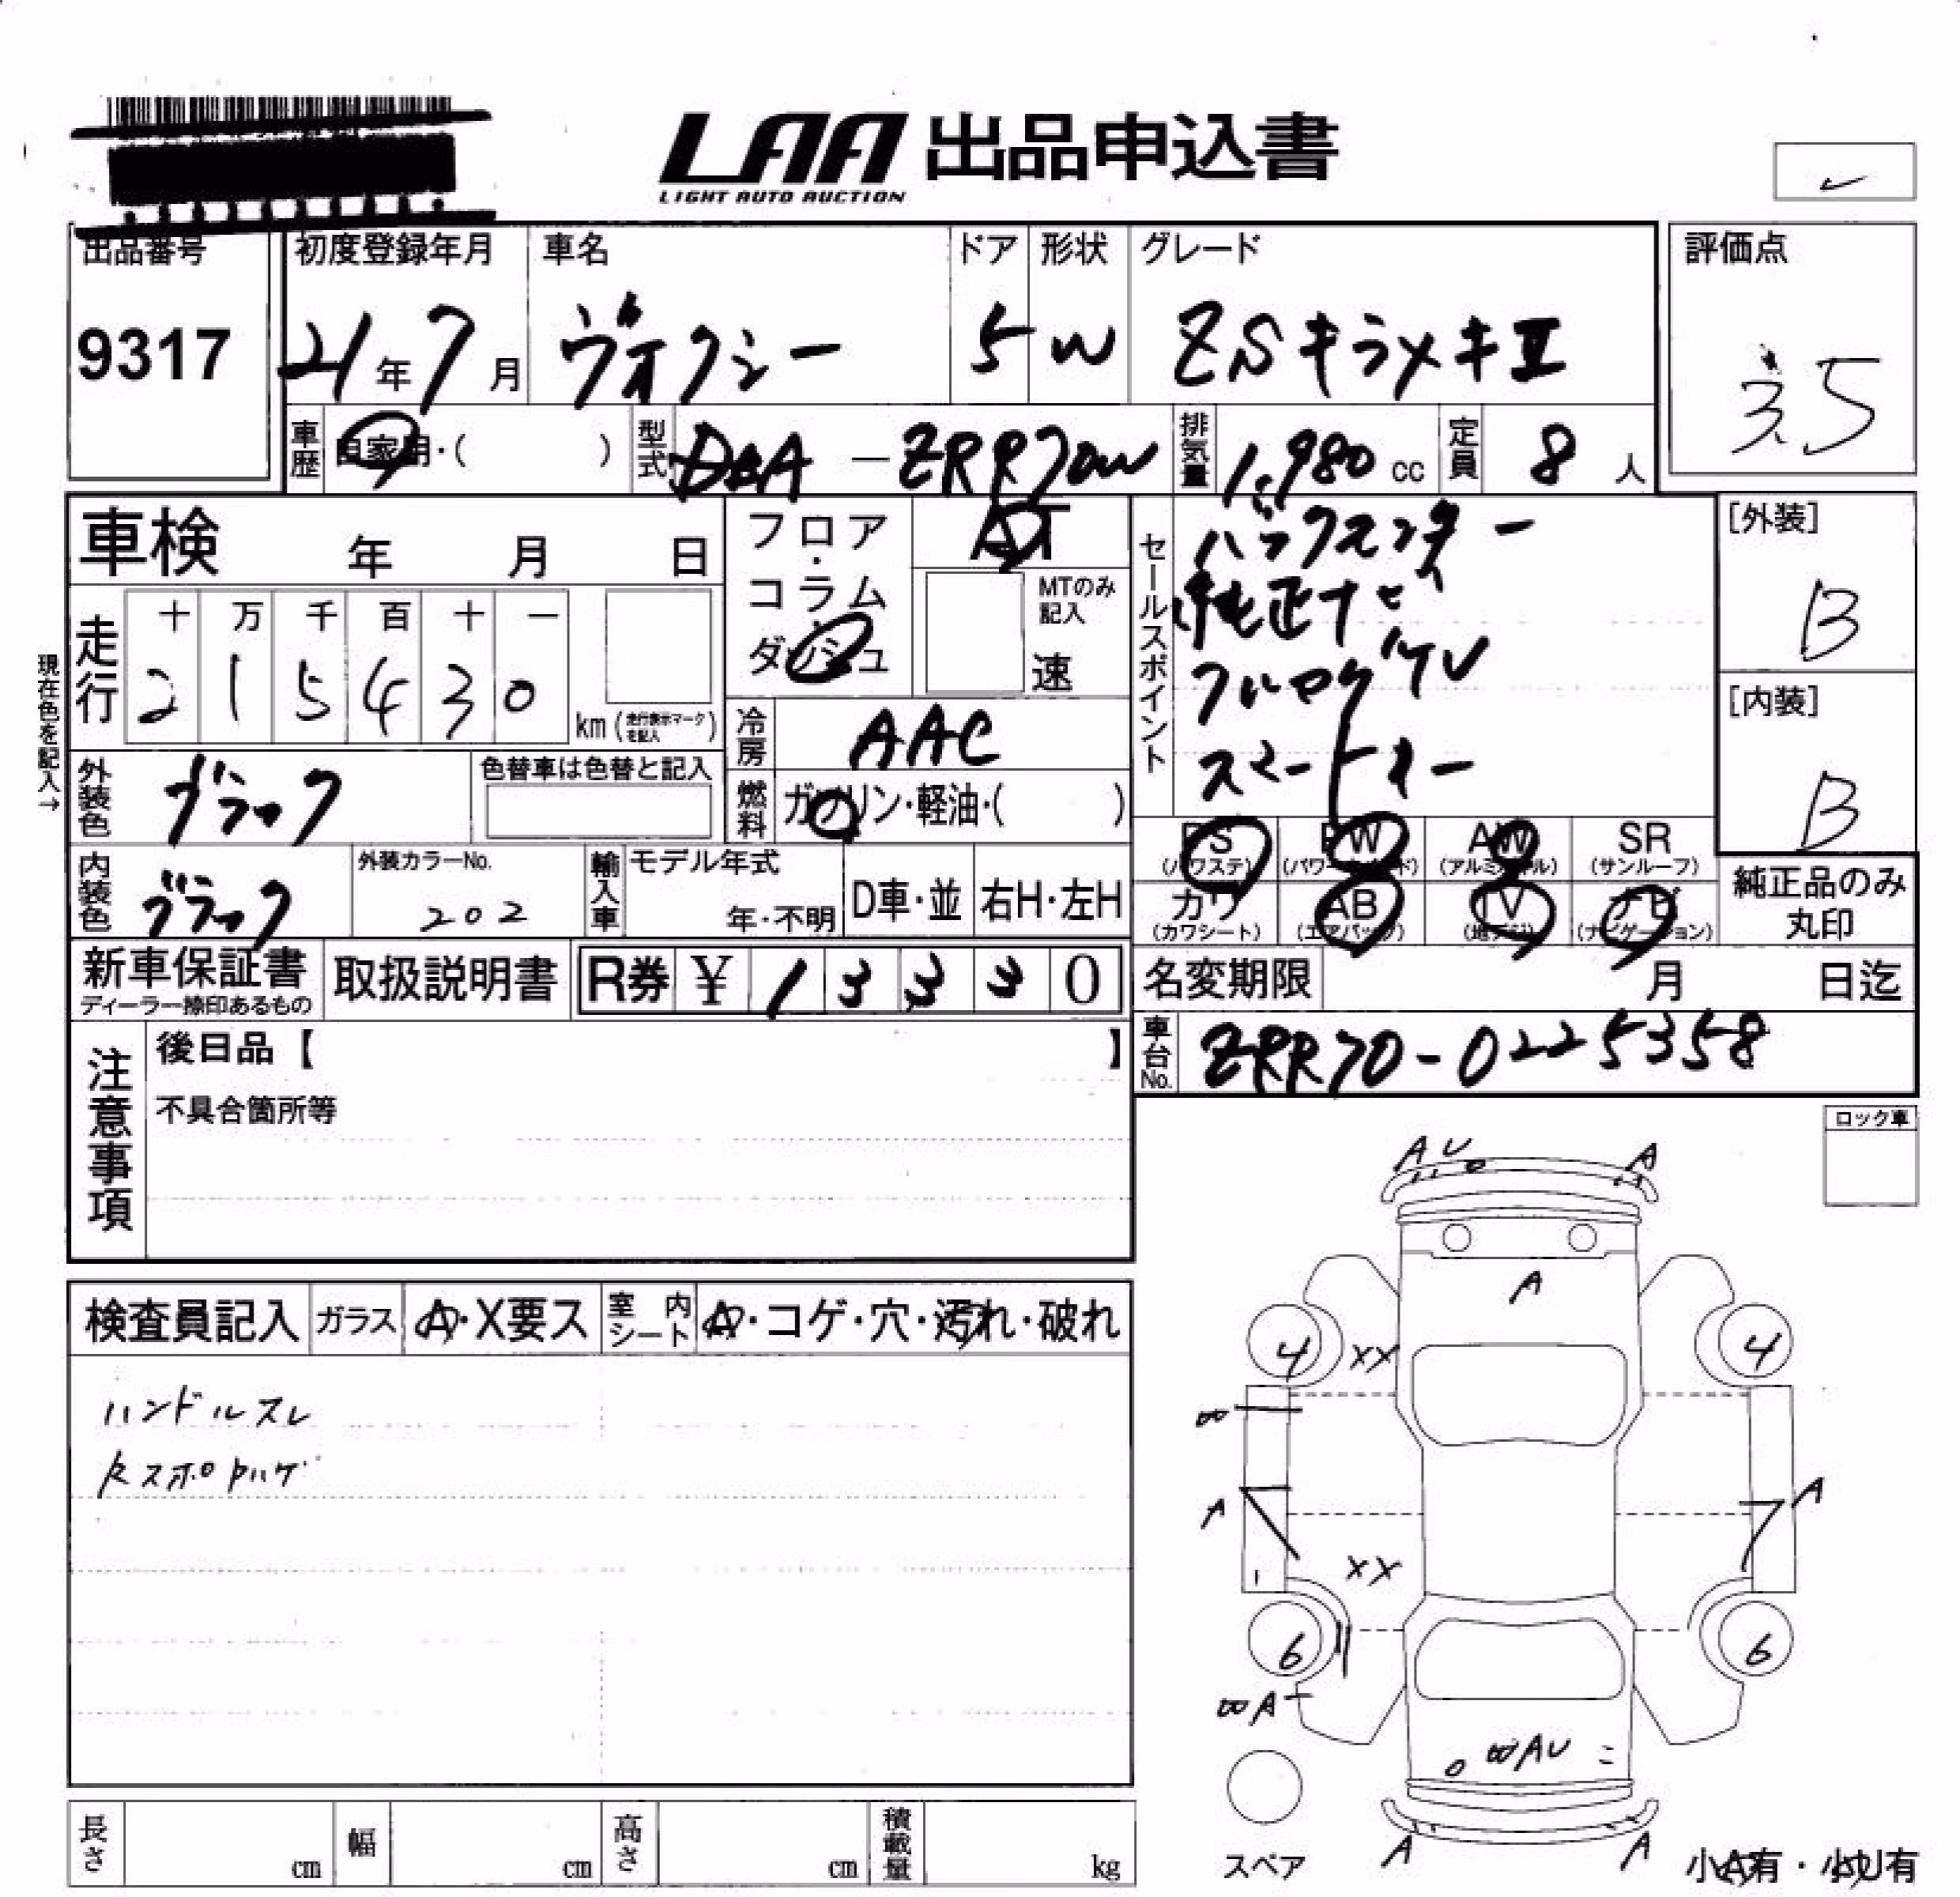 LAA 出品申込書
LIGHT AUTO AUCTION
出品番号 初度登録年月 車名 ドア 形状 グレード 評価点
9317 21年7月 ヴォクシー 5 W ZSキラメキⅡ 3.5
車歴 自家用・( ) 型式 DBA-ZRR70W 排気量 1,980 cc 定員 8 人
車検 年 月 日 フロア・コラム・ダッシュ AT
MTのみ記入 速
走行 十 万 千 百 十 一
2 1 5 4 3 0 km (走行表示マークを記入)
現在色を記入→
外装色 ブラック 色替車は色替と記入
冷房 AAC
燃料 ガソリン・軽油・( )
セールスポイント バックモニター
純正ナビ
フルセグTV
スマートキー
[外装]
B
[内装]
B
PS (パワステ) PW (パワーウインド) AW (アルミホイル) SR (サンルーフ)
カワ (カワシート) AB (エアバッグ) TV (地デジ) ナビ (ナビゲーション)
純正品のみ丸印
内装色 ブラック 外装カラーNo. 202 輸入車 モデル年式 年・不明 D車・並 右H・左H
新車保証書 ディーラー捺印あるもの 取扱説明書 R券 ¥ 1 3 3 3 0
名変期限 月 日迄
車台No. ZRR70-0225358
注意事項 後日品【 】
不具合箇所等
ロック車
検査員記入 ガラス A・X要ス 室内シート A・コゲ・穴・汚れ・破れ
ハンドルスレ
A U A
A
4 XX 4
A A
XX
6 6
A
AU
A A
スペア
小A有・小U有
長さ cm 幅 cm 高さ cm 積載量 kg